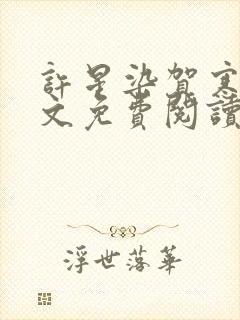 許星染賀寒
文免費閱讀
浮世落華